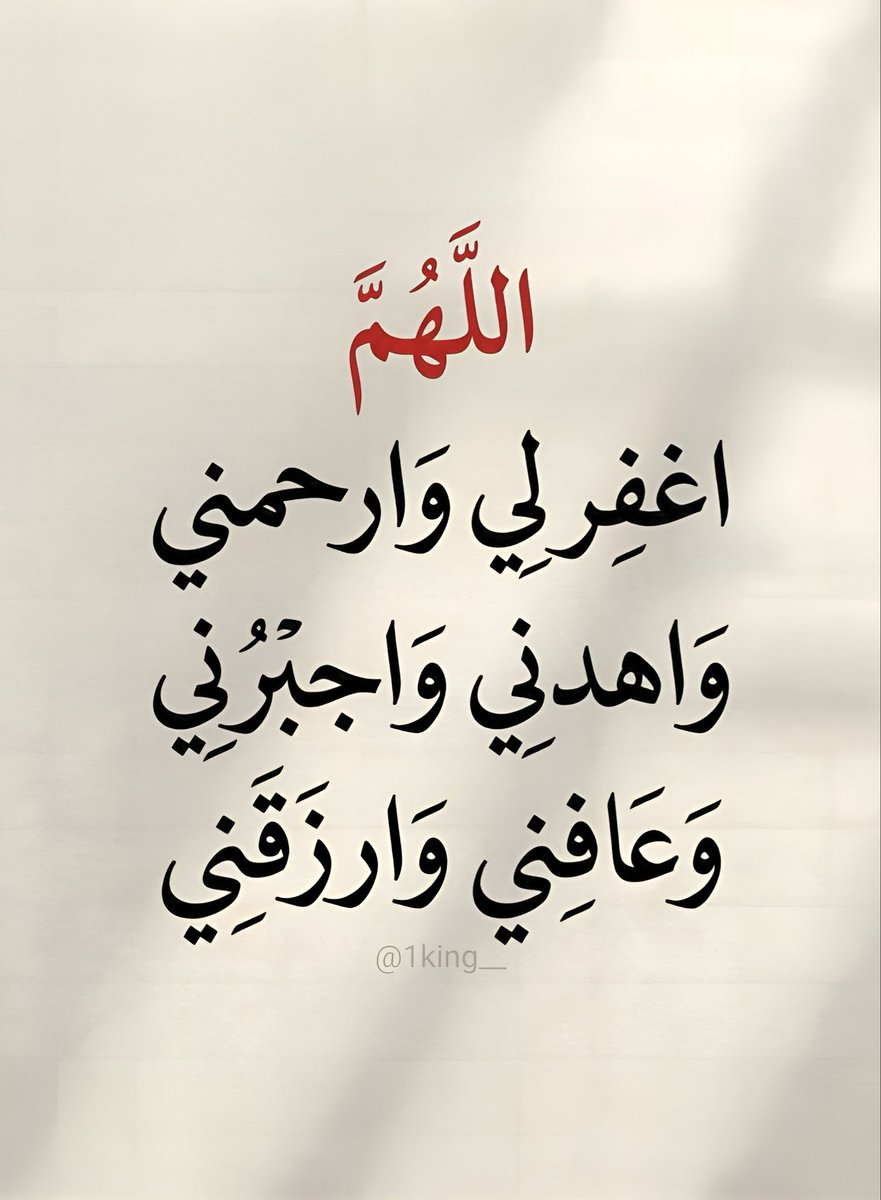 اللَّهُمَّ
اغفِر لِي وَارحمني
وَاهدنِي وَاجبْرُنِي
وَعَافِني وَارزَقَنِي
@1king__